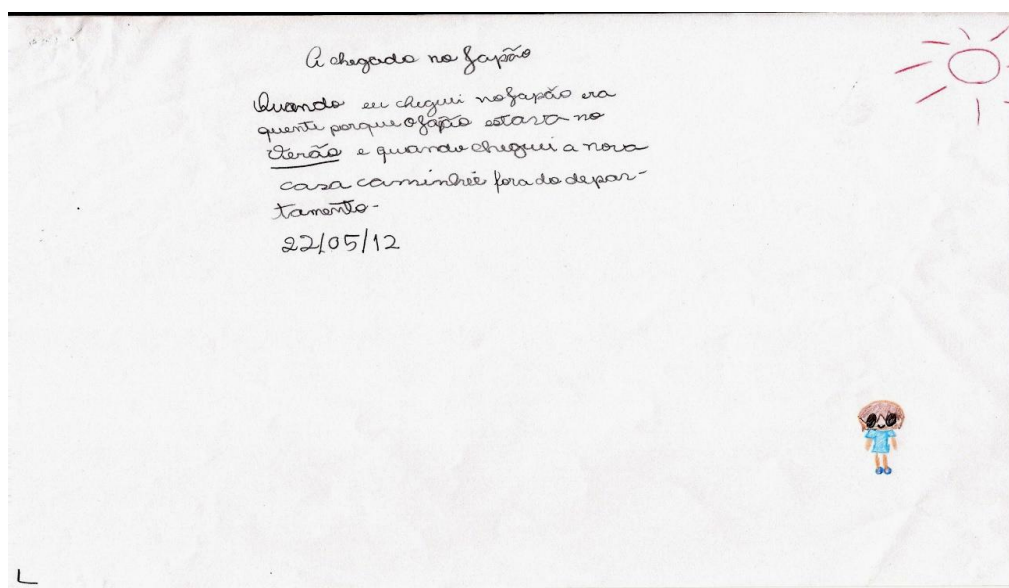 A chegada no Japão
Quando eu cheguei no Japão era
quente porque o Japão estava no
Verão e quando cheguei a nova
casa caminhei fora do depar-
tamento-
22/05/12
L